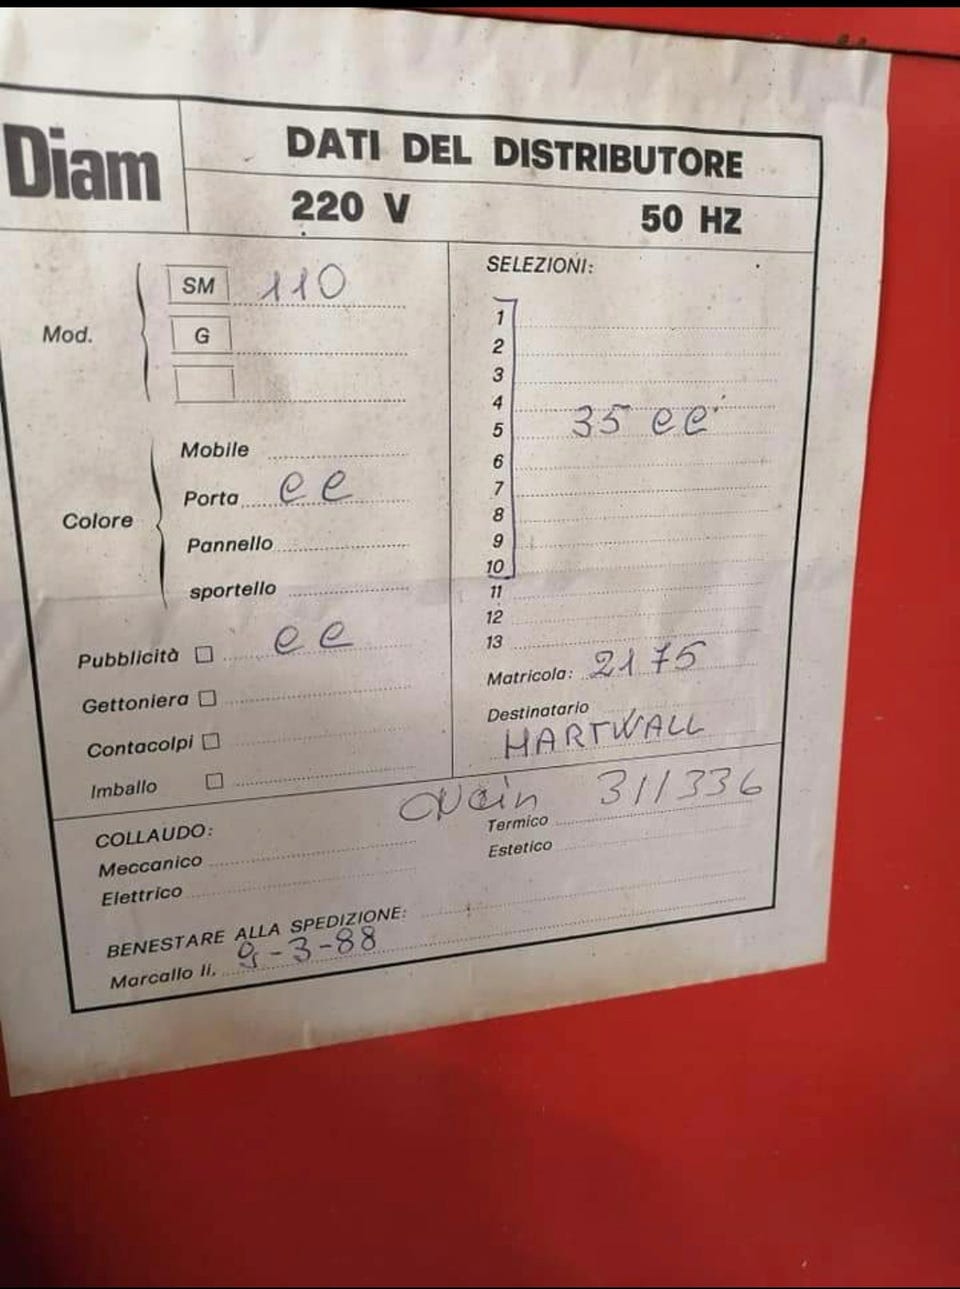 Diam
DATI DEL DISTRIBUTORE
220 V 50 HZ
Mod.
SM 110
G
Colore
Mobile
Porta ee
Pannello
sportello
Pubblicità ee
Gettoniera
Contacolpi
Imballo
SELEZIONI:
1
2
3
4
5 35 ee
6
7
8
9
10
11
12
13
Matricola: 2175
Destinatario
HARTWALL
311336
COLLAUDO:
Meccanico
Elettrico
Termico
Estetico
BENESTARE ALLA SPEDIZIONE:
Marcallo li, 9-3-88